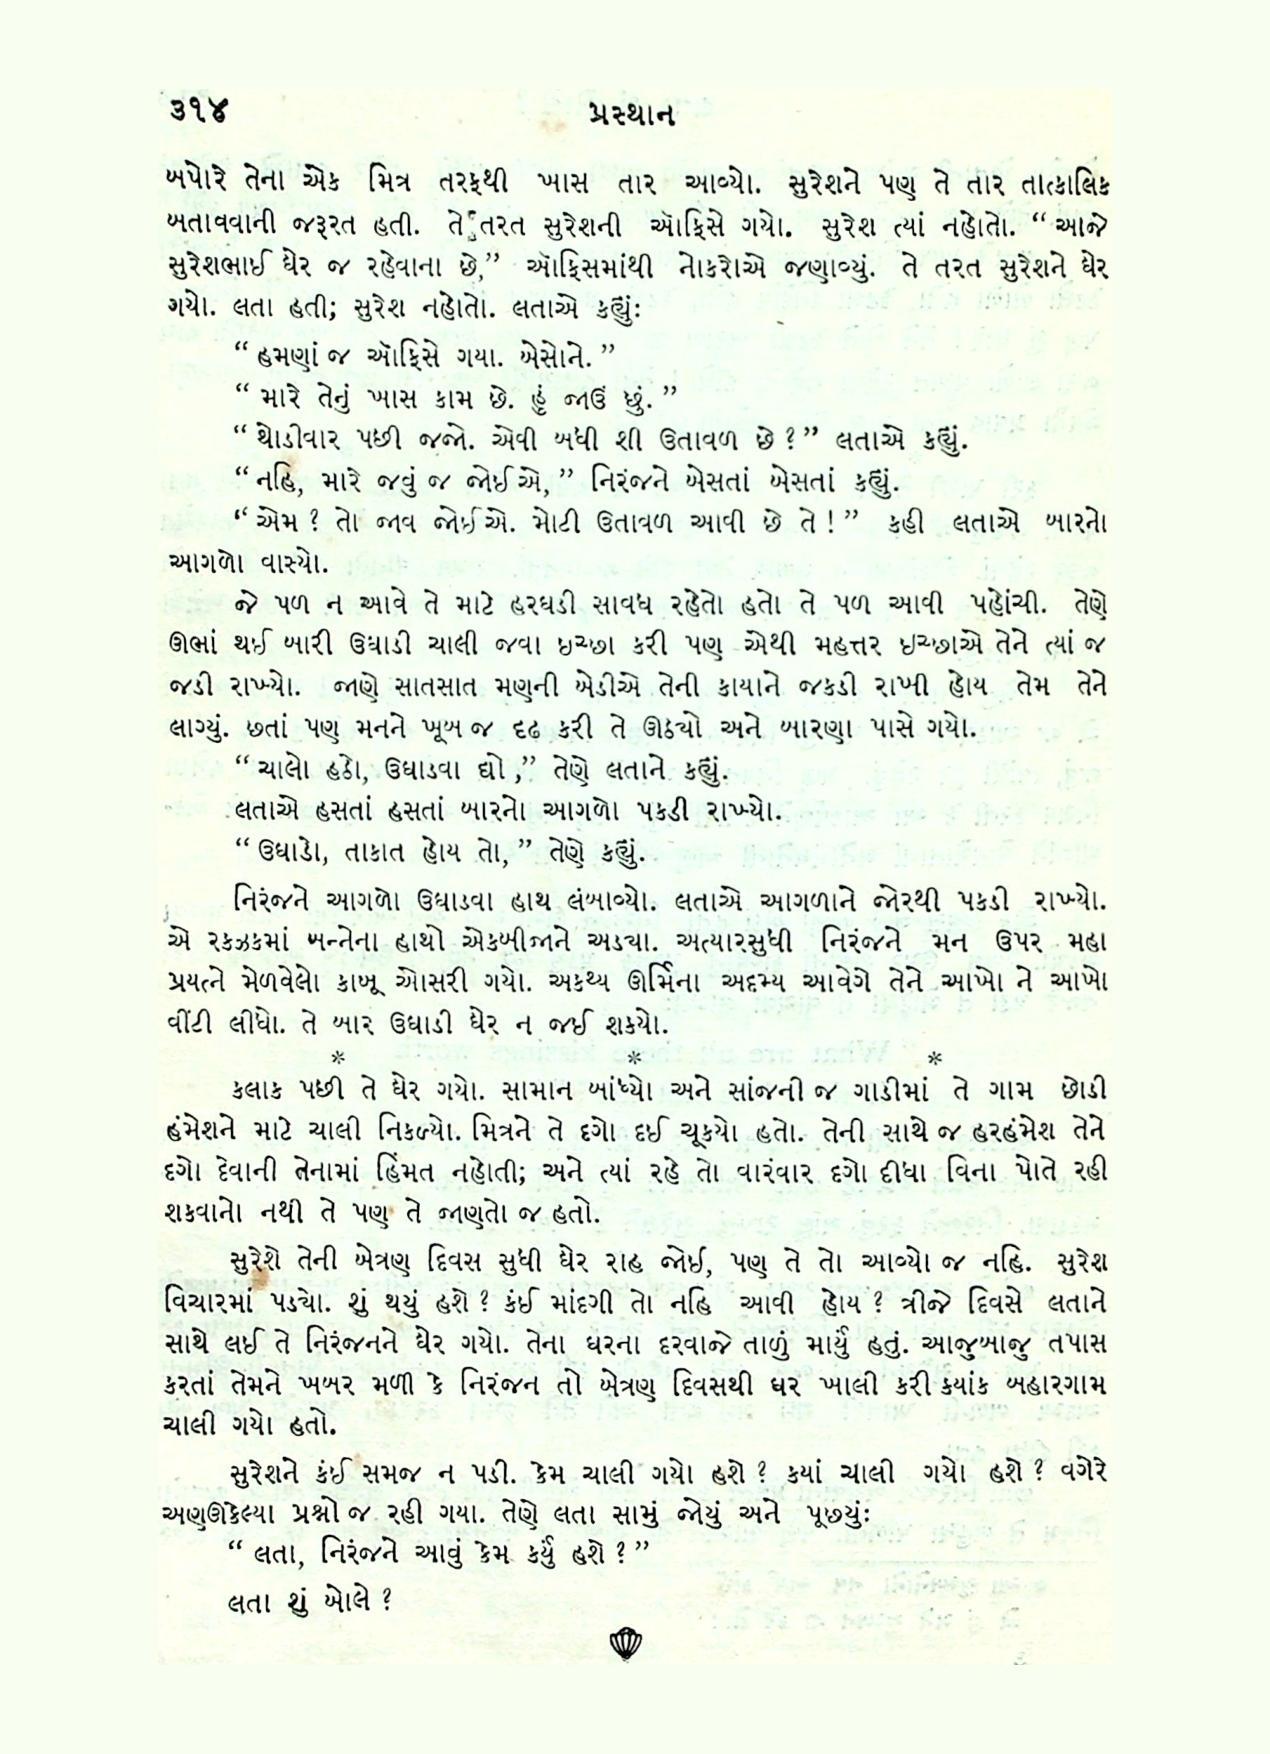 ૩૧૪ પ્રસ્થાન
બપોરે તેના એક મિત્ર તરફથી ખાસ તાર આવ્યો. સુરેશને પણ તે તાર તાત્કાલિક
બતાવવાની જરૂરત હતી. તે તરત સુરેશની ઑફિસે ગયો. સુરેશ ત્યાં નહોતો. “આજે
સુરેશભાઈ ઘેર જ રહેવાના છે,” ઑફિસમાંથી નોકરોએ જણાવ્યું. તે તરત સુરેશને ઘેર
ગયો. લતા હતી; સુરેશ નહોતો. લતાએ કહ્યું:
“હમણાં જ ઑફિસે ગયા. બેસોને.”
“મારે તેનું ખાસ કામ છે. હું જાઉં છું.”
“થોડીવાર પછી જજો. એવી બધી શી ઉતાવળ છે?” લતાએ કહ્યું.
“નહિ, મારે જવું જ જોઈએ,” નિરંજને બેસતાં બેસતાં કહ્યું.
“એમ? તો જાવ જોઈએ. મોટી ઉતાવળ આવી છે તે!” કહી લતાએ બારનો
આગળો વાસ્યો.
જે પળ ન આવે તે માટે હરઘડી સાવધ રહેતો હતો તે પળ આવી પહોંચી. તેણે
ઊભાં થઈ બારી ઉઘાડી ચાલી જવા ઇચ્છા કરી પણ એથી મહત્તર ઇચ્છાએ તેને ત્યાં જ
જડી રાખ્યો. જાણે સાતસાત મણની બેડીએ તેની કાયાને જકડી રાખી હોય તેમ તેને
લાગ્યું. છતાં પણ મનને ખૂબ જ દૃઢ કરી તે ઊઠ્યો અને બારણા પાસે ગયો.
“ચાલો હઠો, ઉઘાડવા દ્યો,” તેણે લતાને કહ્યું.
લતાએ હસતાં હસતાં બારનો આગળો પકડી રાખ્યો.
“ઉઘાડો, તાકાત હોય તો,” તેણે કહ્યું.
નિરંજને આગળો ઉઘાડવા હાથ લંબાવ્યો. લતાએ આગળાને જોરથી પકડી રાખ્યો.
એ રકઝકમાં બન્નેના હાથો એકબીજાને અડ્યા. અત્યારસુધી નિરંજને મન ઉપર મહા
પ્રયત્ને મેળવેલો કાબૂ ઓસરી ગયો. અકથ્ય ઊર્મિના અદમ્ય આવેગે તેને આખો ને આખો
વીંટી લીધો. તે બાર ઉઘાડી ઘેર ન જઈ શક્યો.
* * *
કલાક પછી તે ઘેર ગયો. સામાન બાંધ્યો અને સાંજની જ ગાડીમાં તે ગામ છોડી
હંમેશને માટે ચાલી નિકળ્યો. મિત્રને તે દગો દઈ ચૂક્યો હતો. તેની સાથે જ હરહંમેશ તેને
દગો દેવાની તેનામાં હિંમત નહોતી; અને ત્યાં રહે તો વારંવાર દગો દીધા વિના પોતે રહી
શકવાનો નથી તે પણ તે જાણતો જ હતો.
સુરેશે તેની બેત્રણ દિવસ સુધી ઘેર રાહ જોઈ, પણ તે તો આવ્યો જ નહિ. સુરેશ
વિચારમાં પડ્યો. શું થયું હશે? કંઈ માંદગી તો નહિ આવી હોય? ત્રીજે દિવસે લતાને
સાથે લઈ તે નિરંજનને ઘેર ગયો. તેના ઘરના દરવાજે તાળું માર્યું હતું. આજુબાજુ તપાસ
કરતાં તેમને ખબર મળી કે નિરંજન તો બેત્રણ દિવસથી ઘર ખાલી કરી ક્યાંક બહારગામ
ચાલી ગયો હતો.
સુરેશને કંઈ સમજ ન પડી. કેમ ચાલી ગયો હશે? ક્યાં ચાલી ગયો હશે? વગેરે
અણઊકેલ્યા પ્રશ્નો જ રહી ગયા. તેણે લતા સામું જોયું અને પૂછ્યું:
“લતા, નિરંજને આવું કેમ કર્યું હશે?”
લતા શું બોલે?